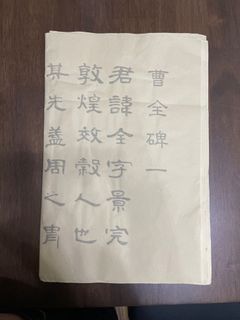 曹全碑一
君諱全字景完
敦煌效穀人也
其先蓋周之胄